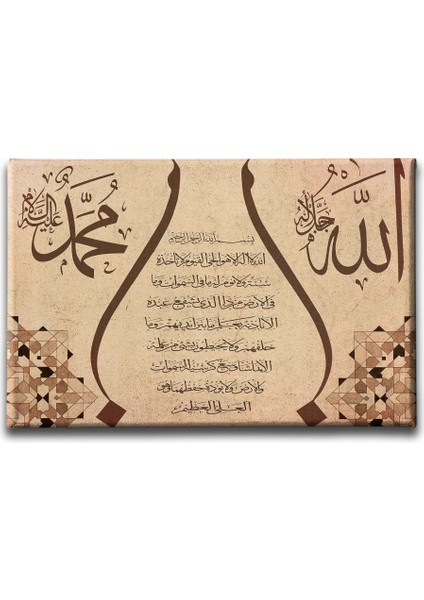 الله جل جلاله
محمد عليه السلام
بسم الله الرحمن الرحيم
الله لا اله الا هو الحي القيوم لا تاخذه
سنة ولا نوم له ما في السموات وما
في الارض من ذا الذي يشفع عنده
الا باذنه يعلم ما بين ايديهم وما
خلفهم ولا يحيطون بشيء من علمه
الا بما شاء وسع كرسيه السموات
والارض ولا يؤده حفظهما وهو
العلي العظيم